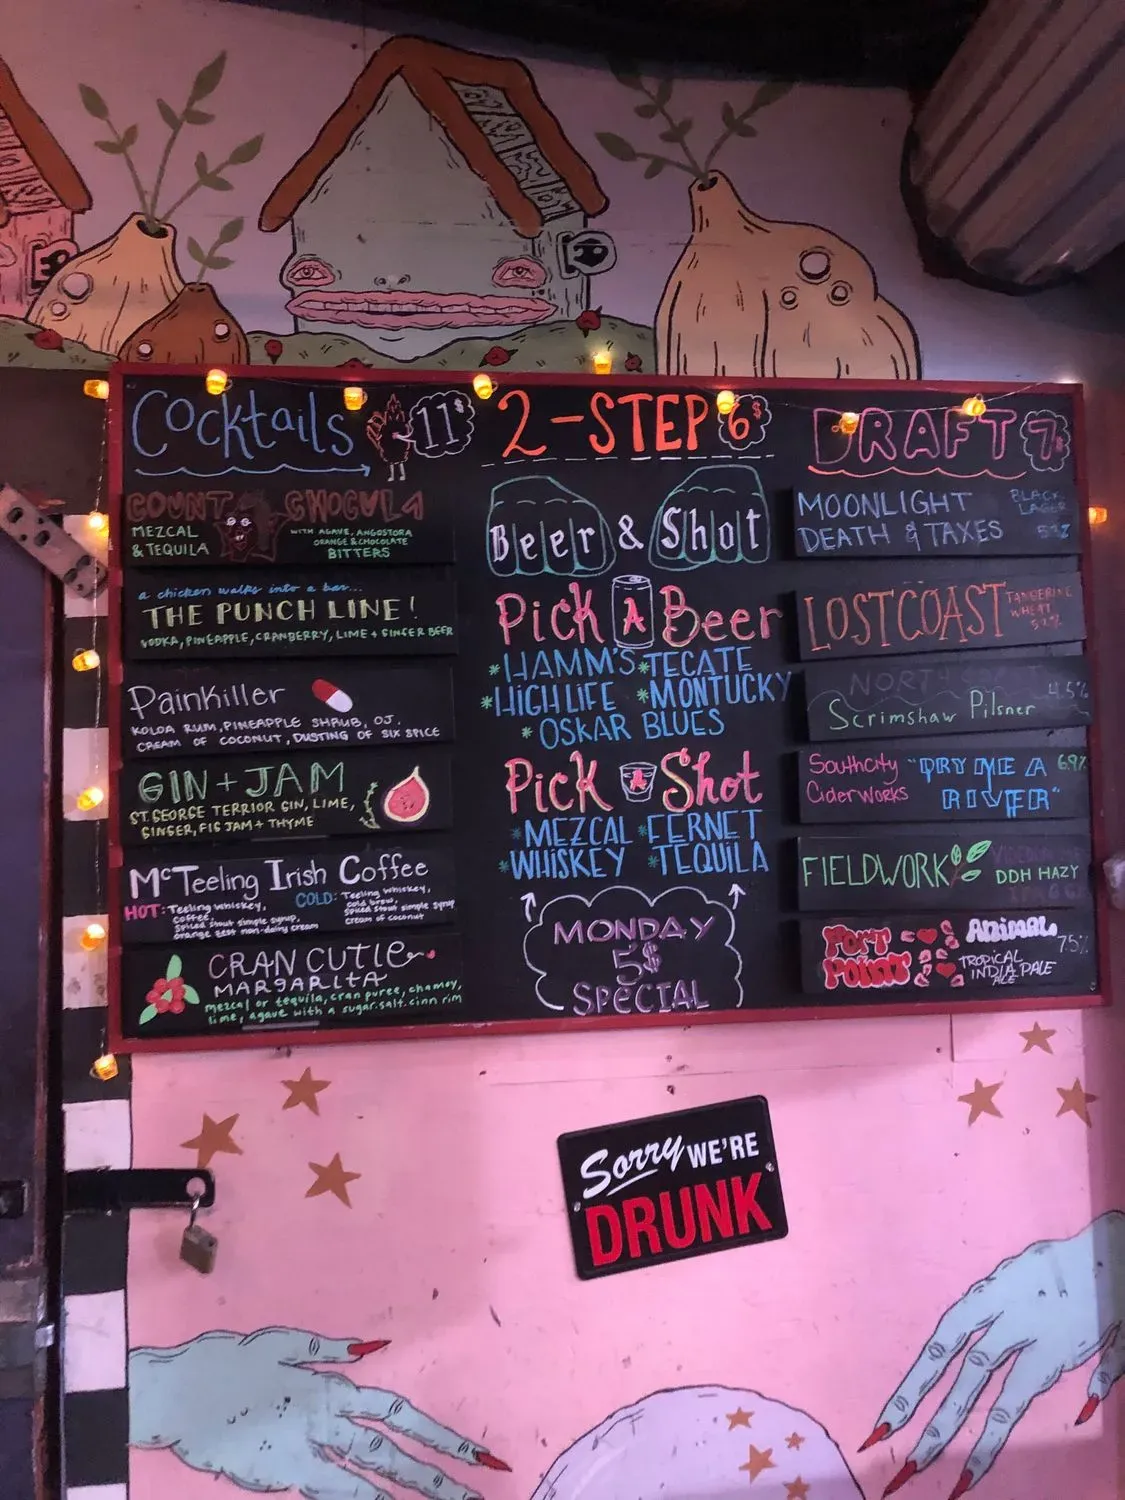 Cocktails 11$
COUNT CHOCULA
MEZCAL
& TEQUILA
WITH AGAVE, ANGOSTORA
ORANGE & CHOCOLATE
BITTERS
a chicken walks into a bar...
THE PUNCH LINE!
VODKA, PINEAPPLE, CRANBERRY, LIME + GINGER BEER
PainKiller
KOLOA RUM, PINEAPPLE SHRUB, OJ,
CREAM OF COCONUT, DUSTING OF SIX SPICE
GIN + JAM
ST. GEORGE TERRIOR GIN, LIME,
GINGER, FIG JAM + THYME
McTeeling Irish Coffee
HOT: Teeling whiskey,
coffee,
spiced stout simple syrup,
orange zest non-dairy cream
COLD: Teeling whiskey,
cold brew,
spiced stout simple syrup
cream of coconut
CRAN CUTIE
MARGARITA
mezcal or tequila, cran puree, chamoy,
lime, agave with a sugar.salt.cinn rim
2-STEP 6$
Beer & Shot
Pick A Beer
*HAMM'S *TECATE
*HIGH LIFE *MONTUCKY
*OSKAR BLUES
Pick A Shot
*MEZCAL *FERNET
*WHISKEY *TEQUILA
MONDAY
5$
SPECIAL
DRAFT 7$
MOONLIGHT
DEATH & TAXES
BLACK
LAGER
LOSTCOAST
TANGERINE
WHEAT
Scrimshaw Pilsner
4.5%
SouthCity
CiderWorks
"DRY ME A
RIVER"
6.9%
FIELDWORK
DDH HAZY
FORT
POINT
Animal
TROPICAL
INDIA PALE
ALE
7.5%
Sorry WE'RE
DRUNK